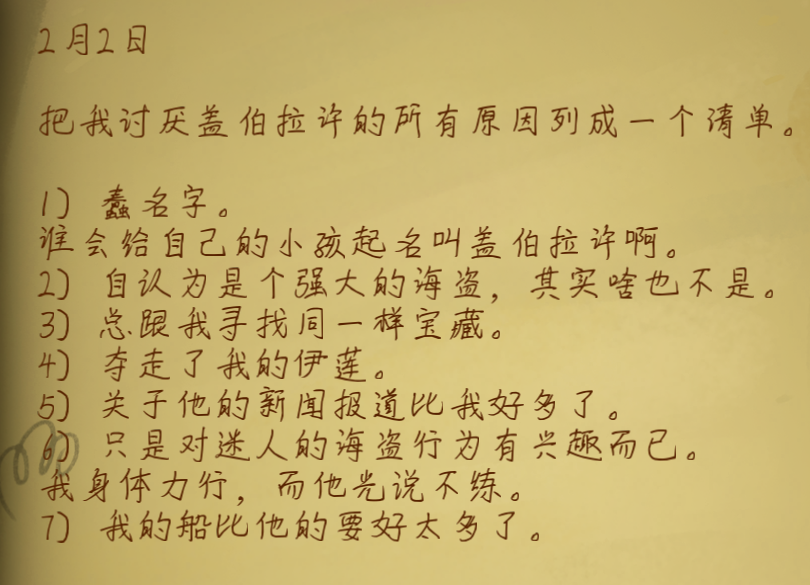 2月2日
把我讨厌盖伯拉许的所有原因列成一个清单。
1) 蠢名字。
谁会给自己的小孩起名叫盖伯拉许啊。
2) 自认为是个强大的海盗，其实啥也不是。
3) 总跟我寻找同一样宝藏。
4) 夺走了我的伊莲。
5) 关于他的新闻报道比我好多了。
6) 只是对迷人的海盗行为有兴趣而已。
我身体力行，而他光说不练。
7) 我的船比他的要好太多了。